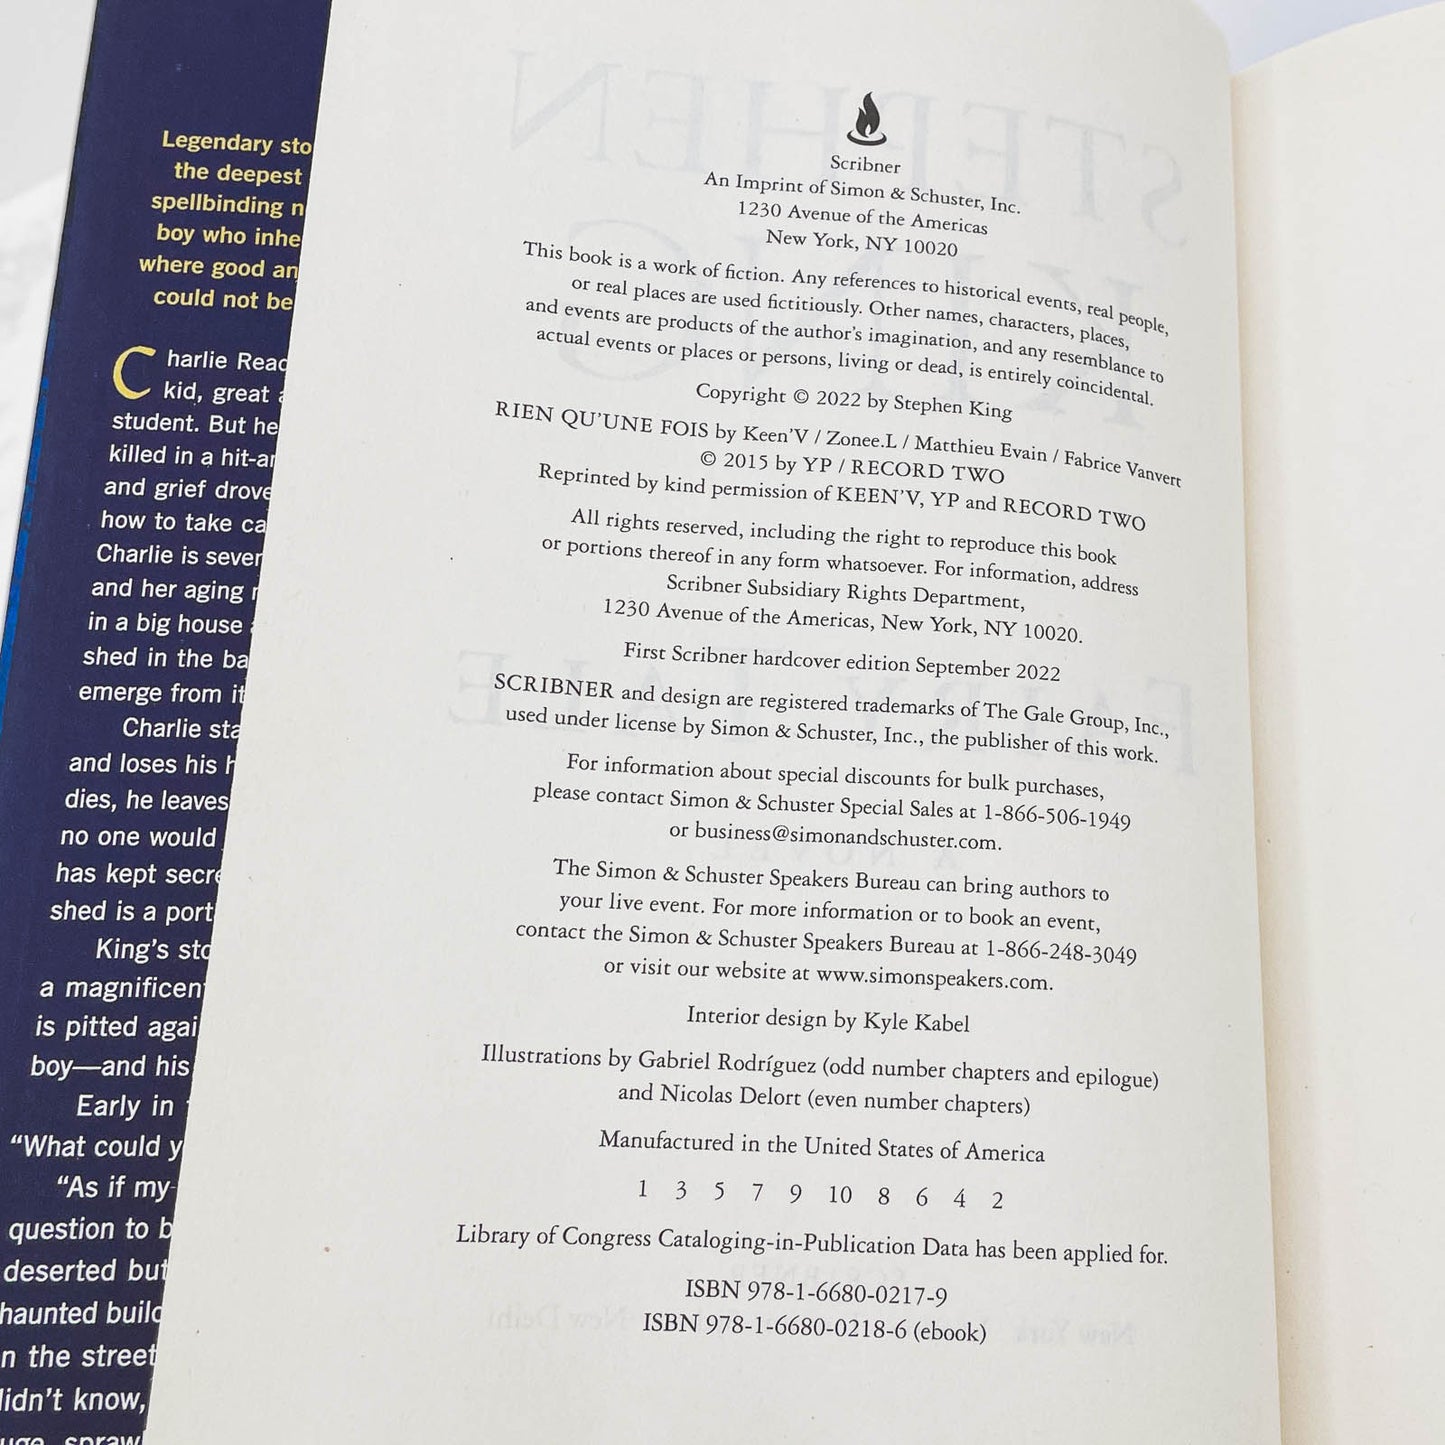 Legendary sto
the deepest
spellbinding n
boy who inhe
where good an
could not be
Charlie Read
kid, great
student. But he
killed in a hit-an
and grief drove
how to take ca
Charlie is seven
and her aging
in a big house
shed in the ba
emerge from it
Charlie sta
and loses his h
dies, he leaves
no one would
has kept secre
shed is a port
King's sto
a magnificen
is pitted agai
boy—and his
Early in
“What could y
“As if my
question to b
deserted but
haunted build
n the street
didn't know,
uge, spraw
Scribner
An Imprint of Simon & Schuster, Inc.
1230 Avenue of the Americas
New York, NY 10020
This book is a work of fiction. Any references to historical events, real people,
or real places are used fictitiously. Other names, characters, places,
and events are products of the author's imagination, and any resemblance to
actual events or places or persons, living or dead, is entirely coincidental.
Copyright © 2022 by Stephen King
RIEN QU'UNE FOIS by Keen'V / Zonee.L / Matthieu Evain / Fabrice Vanvert
© 2015 by YP / RECORD TWO
Reprinted by kind permission of KEEN'V, YP and RECORD TWO
All rights reserved, including the right to reproduce this book
or portions thereof in any form whatsoever. For information, address
Scribner Subsidiary Rights Department,
1230 Avenue of the Americas, New York, NY 10020.
First Scribner hardcover edition September 2022
SCRIBNER and design are registered trademarks of The Gale Group, Inc.,
used under license by Simon & Schuster, Inc., the publisher of this work.
For information about special discounts for bulk purchases,
please contact Simon & Schuster Special Sales at 1-866-506-1949
or business@simonandschuster.com.
The Simon & Schuster Speakers Bureau can bring authors to
your live event. For more information or to book an event,
contact the Simon & Schuster Speakers Bureau at 1-866-248-3049
or visit our website at www.simonspeakers.com.
Interior design by Kyle Kabel
Illustrations by Gabriel Rodríguez (odd number chapters and epilogue)
and Nicolas Delort (even number chapters)
Manufactured in the United States of America
1 3 5 7 9 10 8 6 4 2
Library of Congress Cataloging-in-Publication Data has been applied for.
ISBN 978-1-6680-0217-9
ISBN 978-1-6680-0218-6 (ebook)